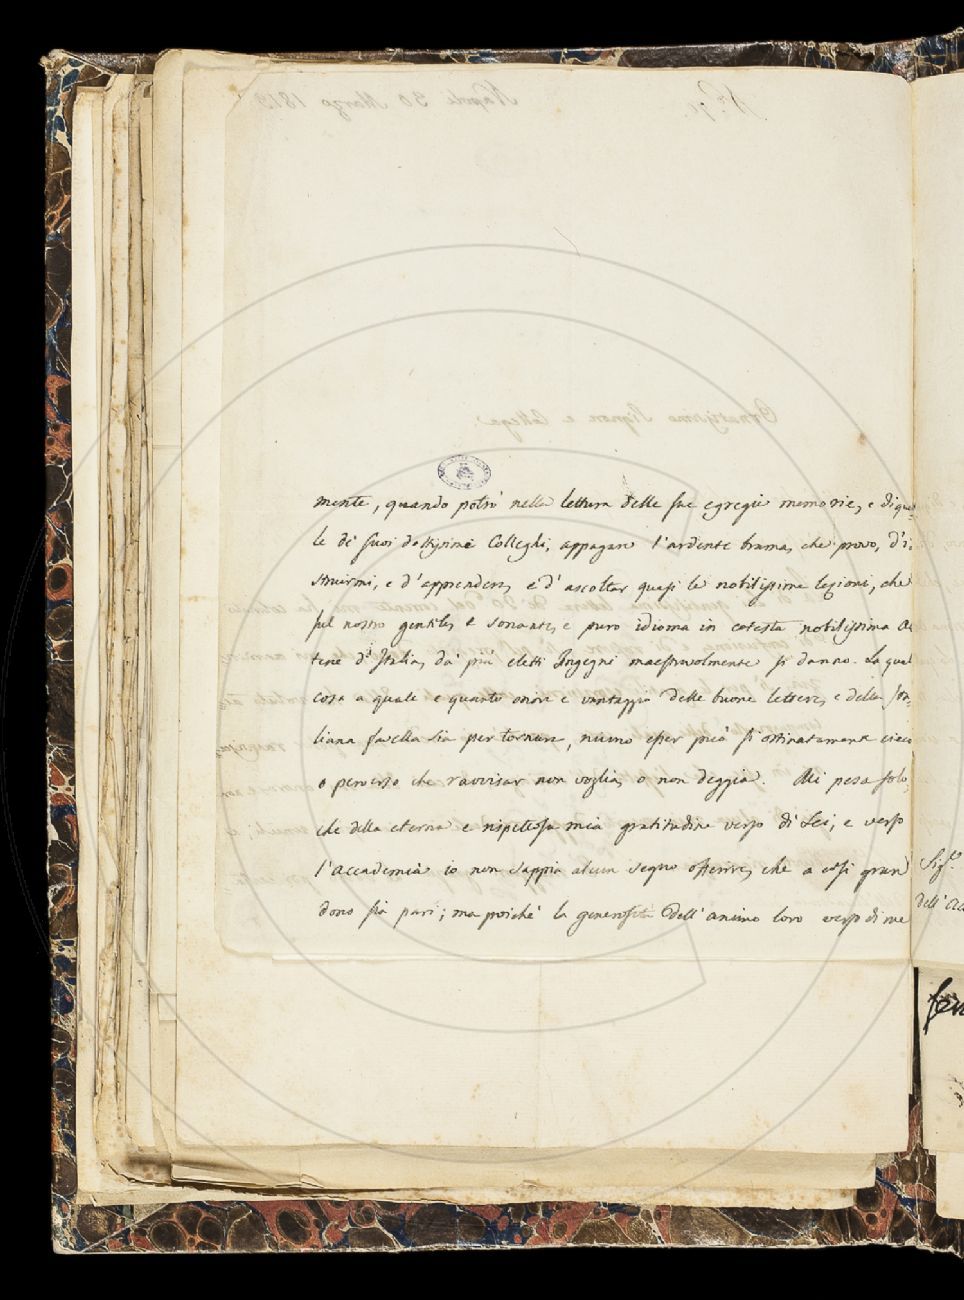 mente, quando potrò nella lettura delle sue egregie memorie, e di quel-
le de' suoi dottissimi Colleghi, appagare l'ardente brama, che provo, d'i-
struirmi, e d'apprendere, e d'ascoltar quasi le nobilissime lezioni, che
sul nostro gentile, e sonante, e puro idioma in cotesta nobilissima A-
tene d'Italia, da' più eletti Ingegni maestrevolmente si danno. La qual
cosa a quale e quanto onore e vantaggio delle buone lettere, e della Ita-
liana favella sia per tornare, niuno esser può sì ostinatamente cieco
o perverso che ravvisar non voglia, o non deggia. Mi pesa solo,
che della eterna e rispettosa mia gratitudine verso di Lei, e verso
l'Accademia io non sappia alcun segno offerire, che a così gran
dono sia pari; ma poichè la generosità dell'animo loro verso di me
Sig.^e
dell'Acc